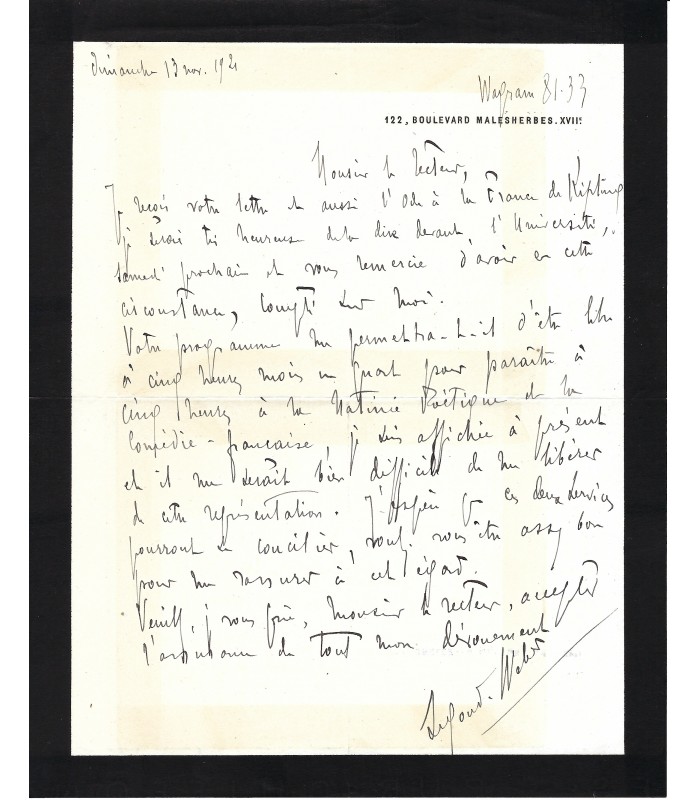 Dimanche 13 nov. 1921
Wagram 81.33
122, BOULEVARD MALESHERBES. XVIIE
Monsieur le Recteur,
Je reçois votre lettre et aussi l'Ode à la France de Kipling
je serai très heureuse de la dire devant l'Université,
samedi prochain et vous remercie d'avoir en cette
circonstance, compté sur moi.
Votre programme me permettra-t-il d'être libre
à cinq heures moins un quart pour paraître à
cinq heures à la Matinée Poétique de la
Comédie-française, je suis affichée à présent
et il me serait bien difficile de me libérer
de cette représentation. J'espère que ces deux services
pourront se concilier, voulez vous être assez bon
pour me rassurer à cet égard.
Veuillez, je vous prie, monsieur le recteur, accepter
l'assurance de tout mon dévouement
Segond-Weber